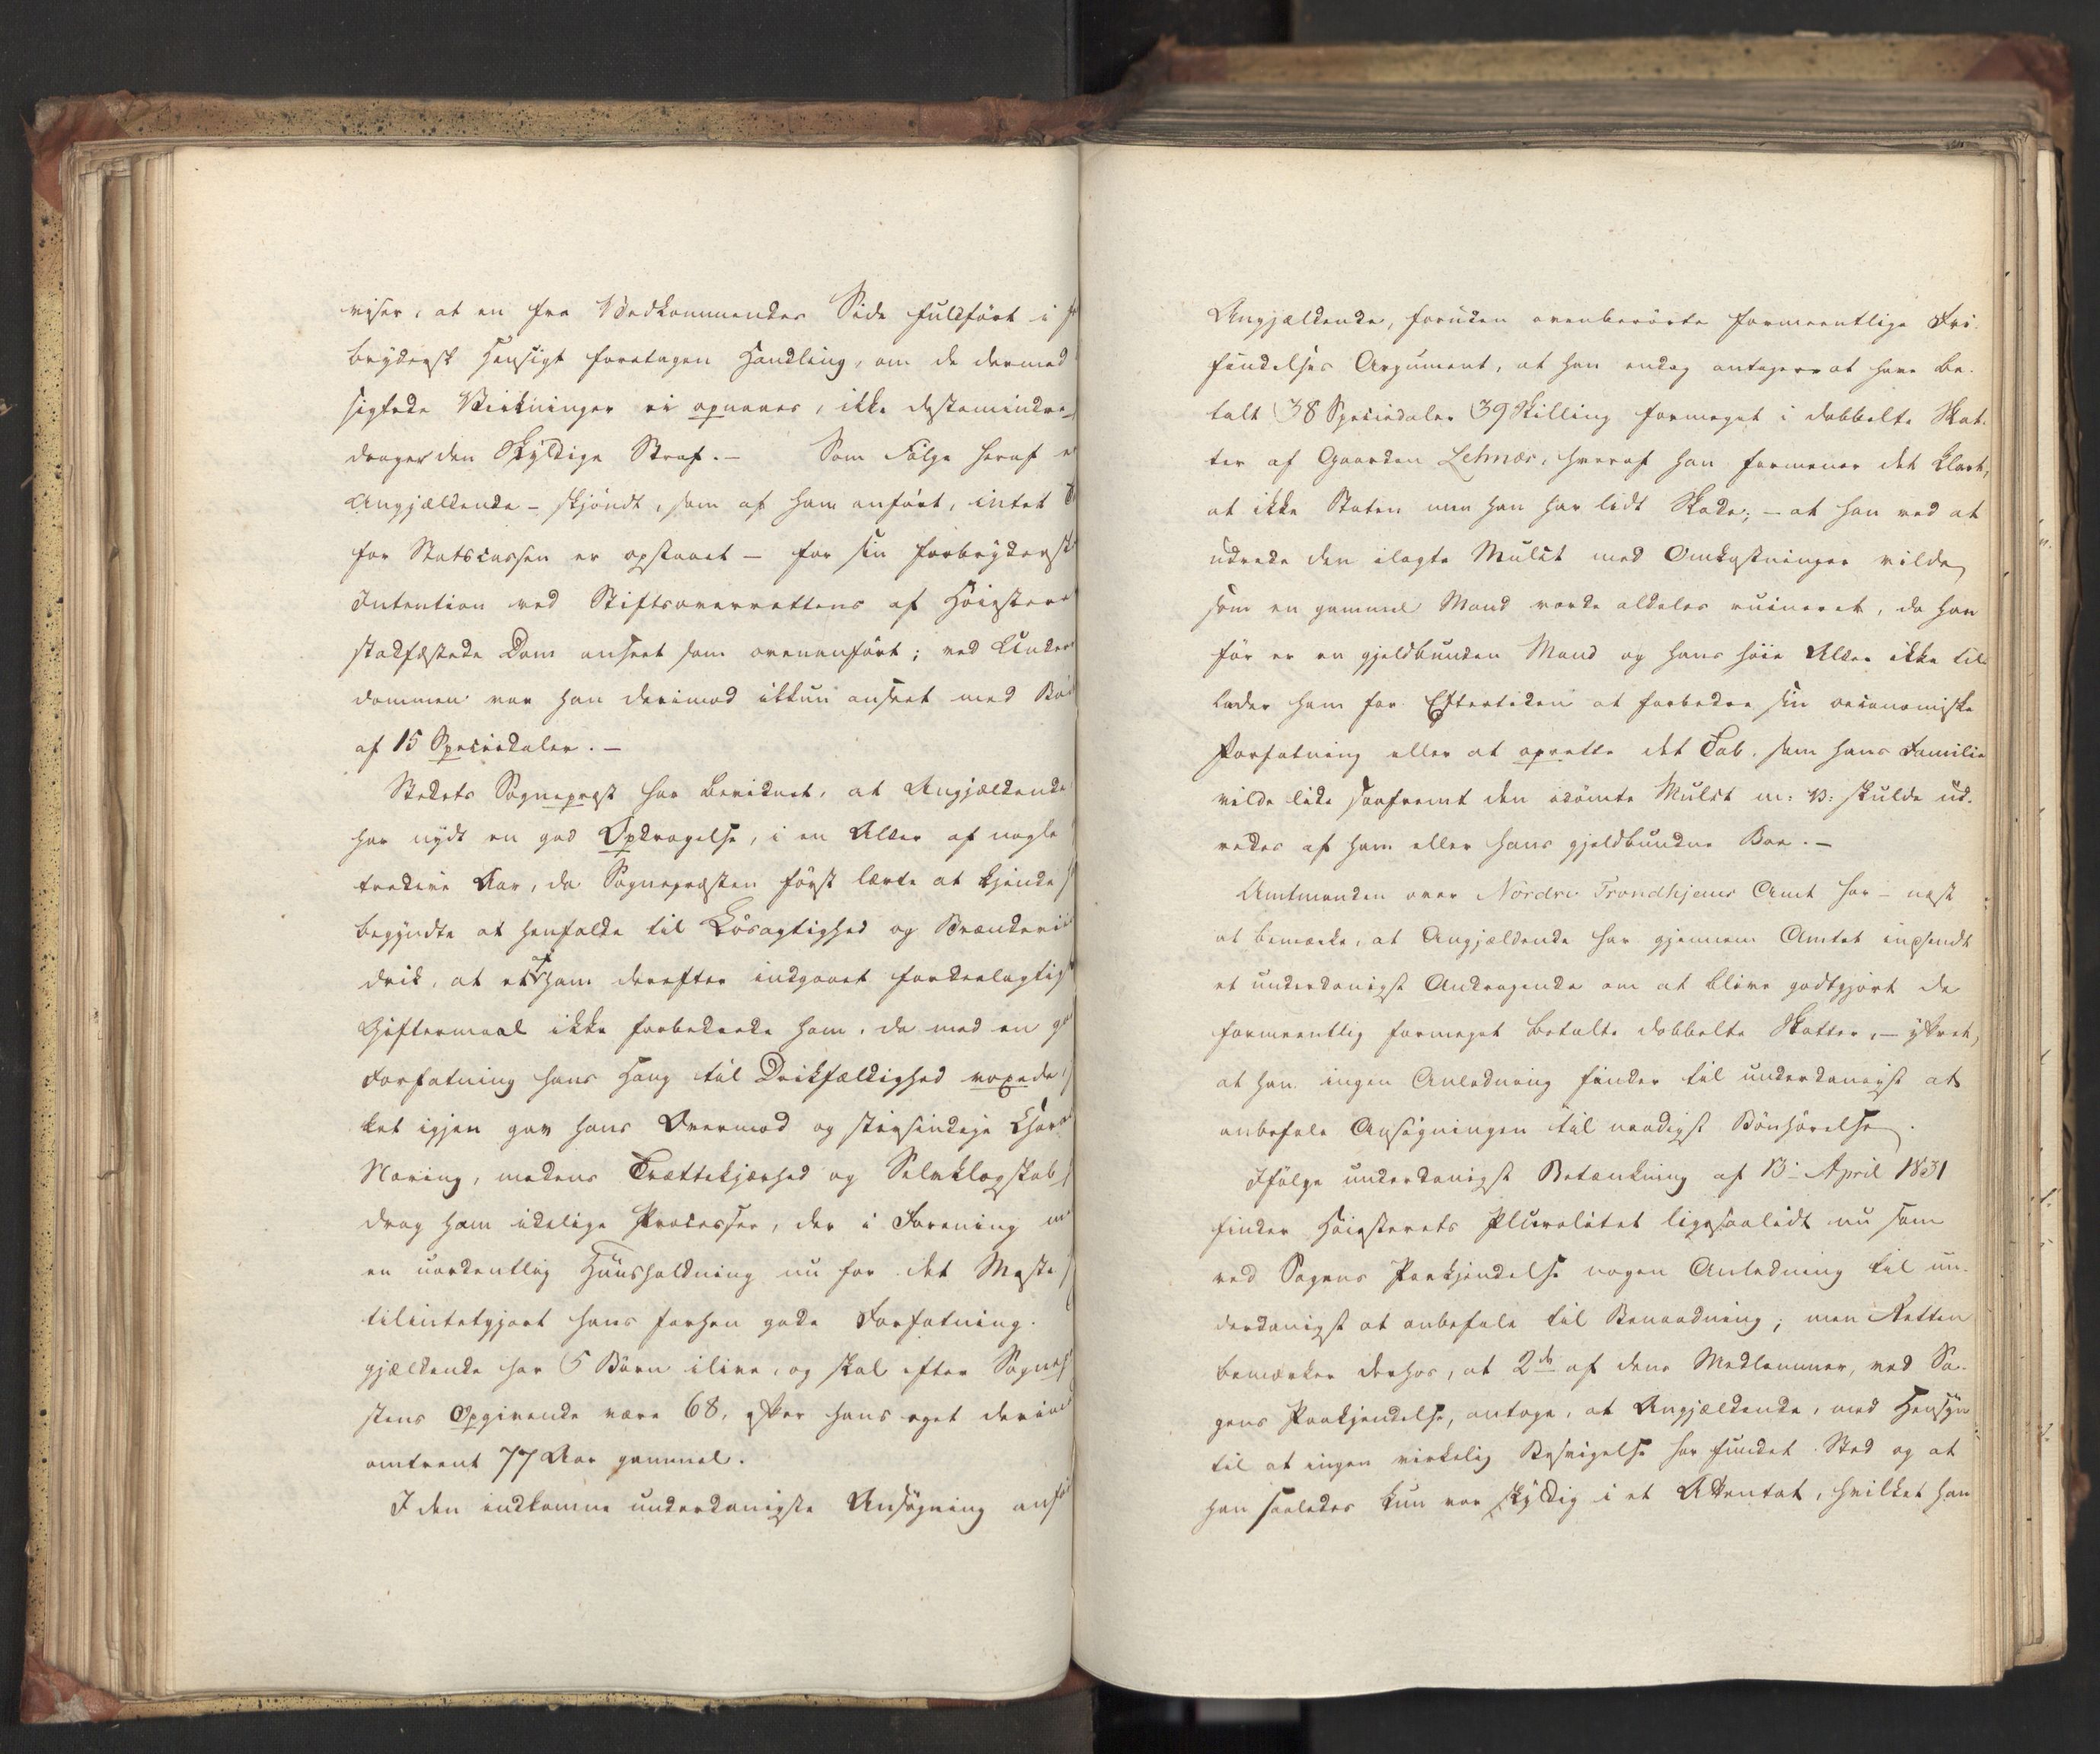 viser, at en fra Vedkommendes Side fuldført i
brydersk Hensigt foretagen Handling, om de dermed
sigtede Virkninger ei opnaaes, ikke destomindre
drager den Skyldige Straf. – Som Følge heraf
Angjældende – skjøndt, som af ham anført, intet
for Statscassen er opstaaet – for sin forbrydersk
Intention ved Stiftsoverrettens af Høiestere
stadfæstede Dom anseet som ovenanført; ved Under
dommen var han derimod ikkun anseet med
af 15 Speciedaler. –
Stedets Sognepræst har bevidnet, at Angjældende
har nydt en god Opdragelse, i en Alder af nogle
tredive Aar, da Sognepræsten først lærte at kjende
begyndte at henfalde til Løsagtighed og Brændeviins
drik, at et af ham derefter indgaaet fordeelagtigt
Giftermaal ikke forbedrede ham, da med en
Forfatning hans Hang til Drikfældighed voxede,
det igjen gav hans Overmod og stivsindige
Næring, medens Trættekjærhed og Selvklogskab
drog ham idelige Processer, der i Forening
en uordentlig Huusholdning nu for det Meste
tilintetgjort hans forhen gode Forfatning.
gjældende har 5 Børn ilive, og skal efter Sogne
stens Opgivende være 68, efter hans eget derimod
omtrent 77 Aar gammel.
I den indkomne underdanigste Ansøgning
Angjældende, foruden ovenberørte formeentlige Fri-
findelses Argument, at han endog antages at have be-
talt 38 Speciedaler 39 Skilling formeget i dobbelte Skat-
ter af Gaarden Lehnæs, hvoraf han formener det klart,
at ikke Staten men han har lidt Skade; – at han ved at
udrede den ilagte Mulct med Omkostninger vilde
som en gammel Mand vorde aldeles ruineret, da han
før er en gjeldbunden Mand og hans høie Alder ikke til-
lader ham for Eftertiden at forbedre sin oeconomiske
Forfatning eller at oprette det Tab, som hans Familie
vilde lide saafremt den idømte Mulct m: V: skulde ud-
redes af ham eller hans gjeldbundne Boe. –
Amtmanden over Nordre Trondhjems Amt har – næst
at bemærke, at Angjældende har gjennem Amtet indsendt
et underdanigst Andragende om at blive godtgjort de
formeentlig formeget betalte dobbelte Skatter, – yttret,
at han ingen Anledning finder til underdanigst at
anbefale Ansøgningen til naadigst Bønhørelse.
Ifølge underdanigst Betænkning af 13. April 1831
finder Høiesterets Pluralitet ligesaalidt nu som
ved Sagens Paakjendelse nogen Anledning til un-
derdanigst at anbefale til Benaadning; men Retten
bemærker derhos, at 2de af dens Medlemmer, ved Sa-
gens Paakjendelse, antoge, at Angjældende, med Hensyn
til at ingen virkelig Besvigelse har fundet Sted og at
han saaledes kun var skyldig i et Attentat, hvilket han